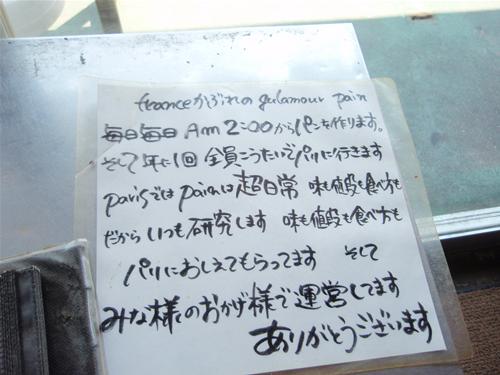 franceかぶれの gulamour pain
毎日毎日 Am 2:00からパンを作ります。
そして年に1回 全員こうたいでパリに行きます
parisでは painは超日常 味も値段も食べ方も
だから いつも研究します 味も値段も食べ方も
パリにおしえてもらってます そして
みな様のおかげ様で運営してます
ありがとうございます